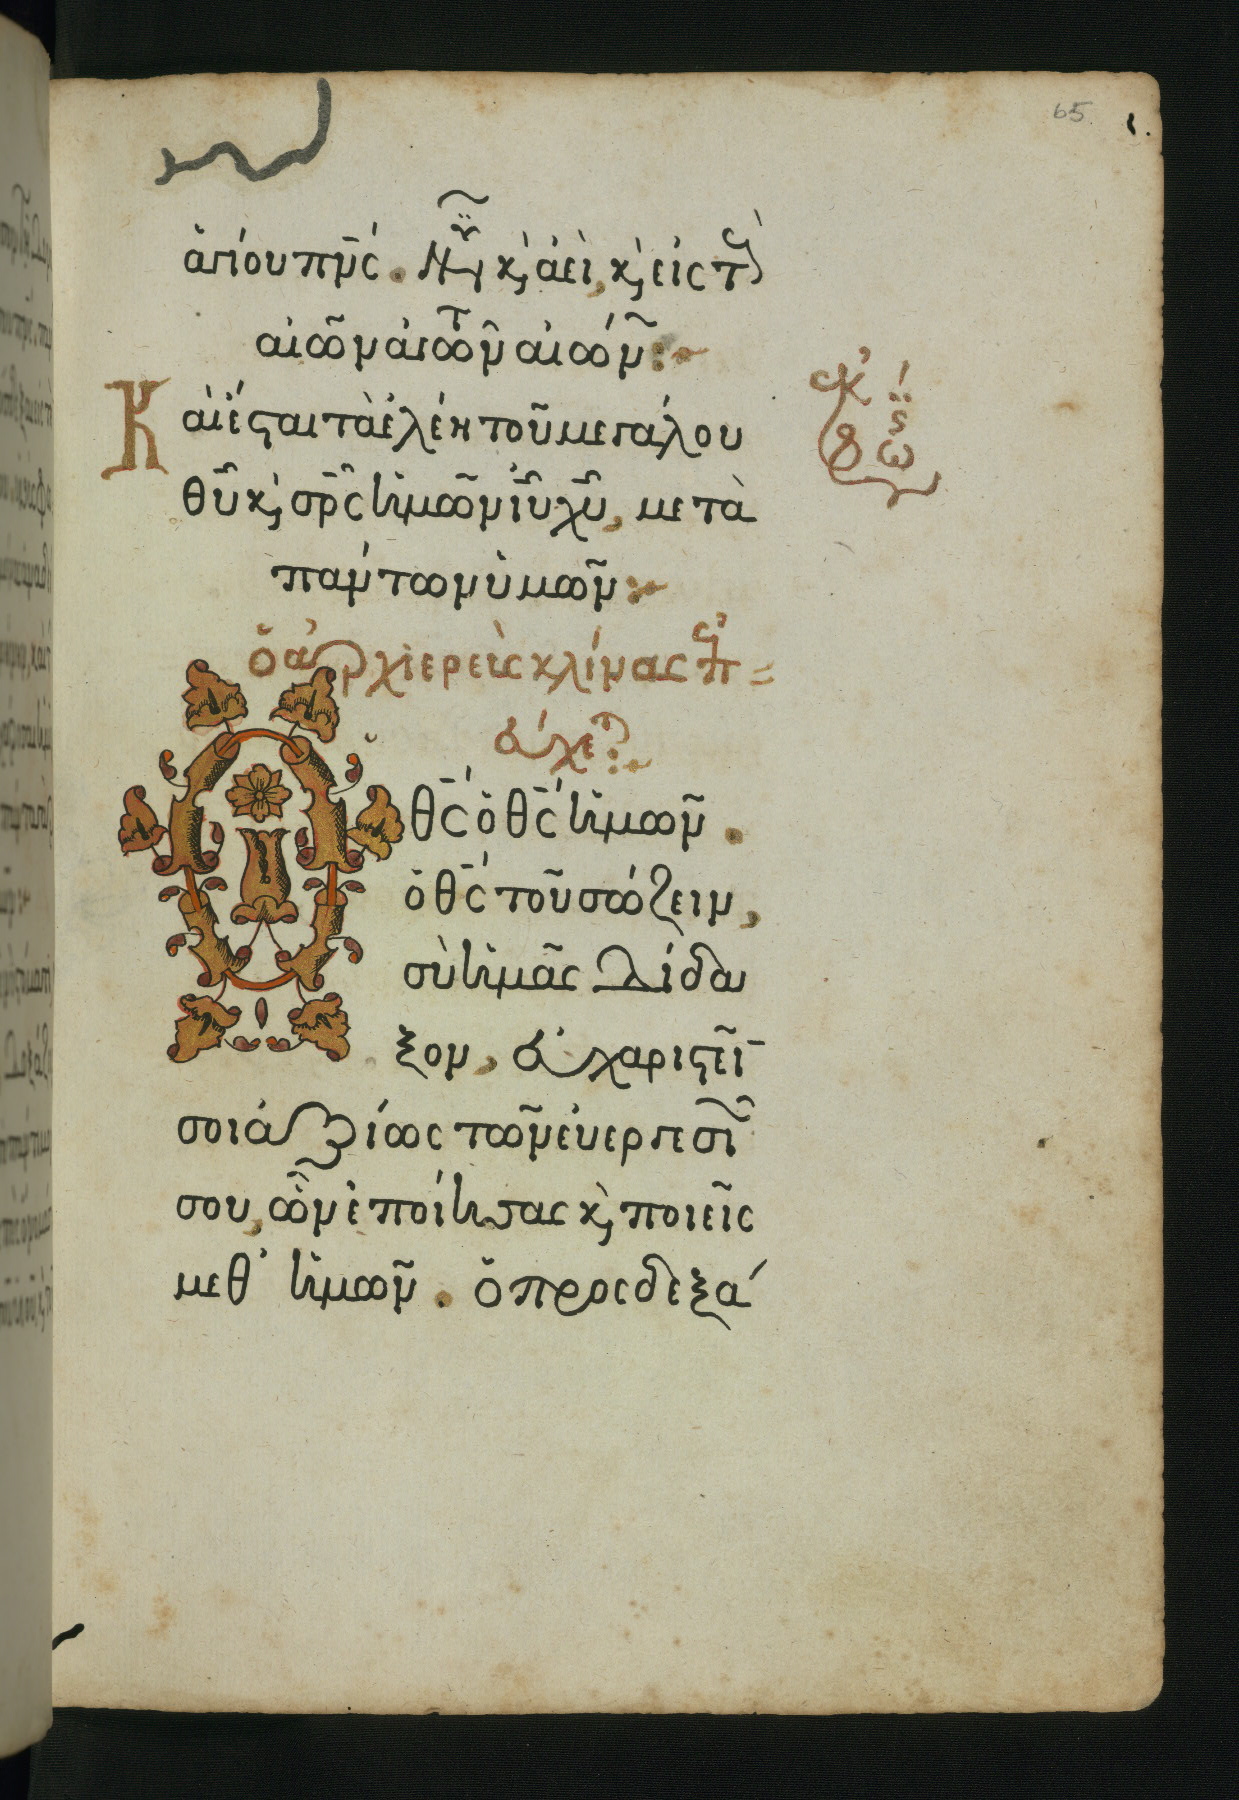 65
ἁγίου πν̅ς. Νῦν κ̀ ἀεὶ, κ̀ εἰς τ
αἰῶναις τῶν αἰών:
Καὶ ἔσται τὰ ἐλέη τοῦ μεγάλου
θῦ κ̀ σρ̅ς ἡμῶν ἰῦ χῦ, μετὰ
πάντων ὑμῶν:
ὁ ἀρχιερεὺς κλίνας
εὔχε:
Ὁ θς̅ ὁ θς̅ ἡμῶν.
ὁ θς̅ τοῦ σώζειν,
σὺ ἡμᾶς δίδα
ξον, εὐχαριστεῖ
σοι ἀξίως τῶν εὐεργεσι
σου, ὧν ἐποίησας κ̀ ποιεῖς
μεθ' ἡμῶν. ὁ προσδεξά